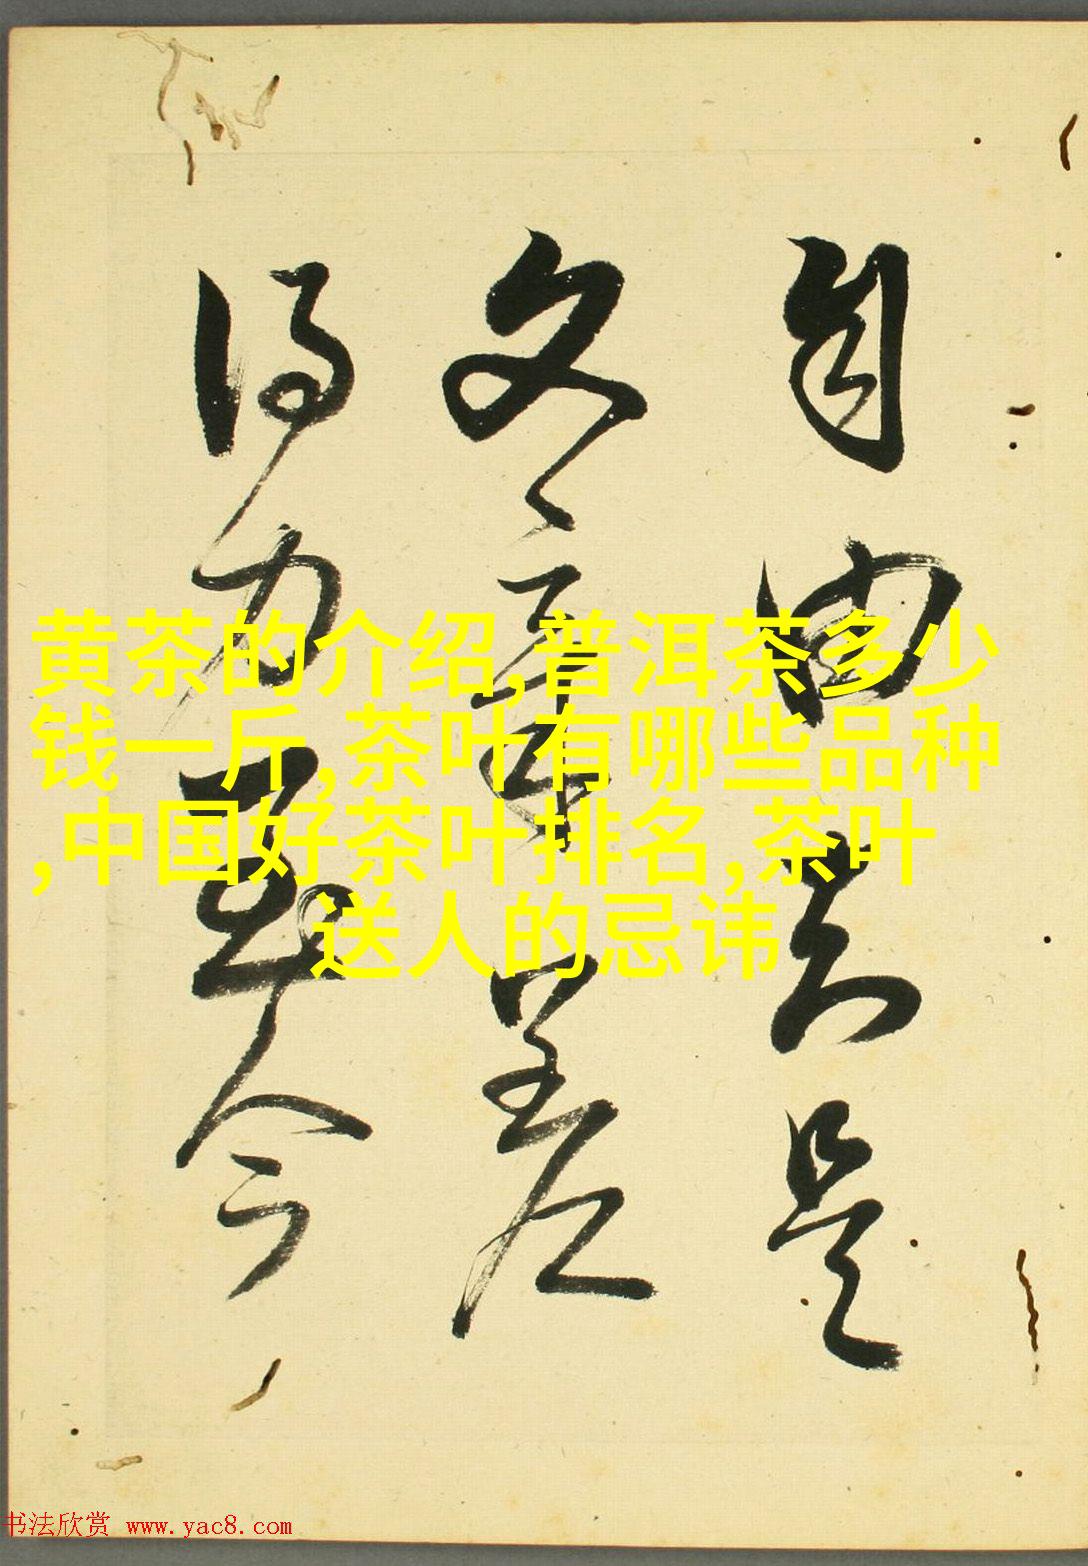 自由是
文章差
得力今
黄茶的介绍,普洱茶多少
钱一斤,茶叶有哪些品种
,中国好茶叶排名,茶叶
送人的忌讳
书法欣赏 www.yac8.com